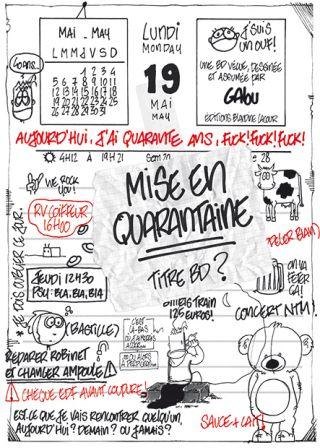 40 ans...
MAI - MAY
L M M J V S D
1 2 3 4
5 6 7 8 9 10 11
12 13 14 15 16 17 18
19 20 21 22 23 24 25
26 27 28 29 30 31
LUNDI
MONDAY
19
MAI
MAY
J'SUIS
UN OUF!
UNE BD VÉCUE, DESSINÉE
ET ASSUMÉE PAR
GALOU
EDITIONS BLANDINE LACOUR
AUJOURD'HUI, J'AI QUARANTE ANS, FUCK! FUCK! FUCK!
4H12 À 19H21
28
WE ROCK
YOU!
MISE EN
QUARANTAINE
TITRE BD?
RV COIFFEUR
16H00
JEUDI 12H30
PSY: BLA, BLA, BLA
ON VA
FETER
ÇA!
BILLETS TRAIN
125 EUROS!
CONCERT NTM!
(BASTILLE)
C'EST
LÀ-BAS
REPARER ROBINET
ET CHANGER AMPOULE
CHEQUE EDF AVANT COUPURE!
EST-CE QUE JE VAIS RENCONTRER QUELQU'UN,
AUJOURD'HUI? DEMAIN? OU JAMAIS?
SAUCE + LAIT!